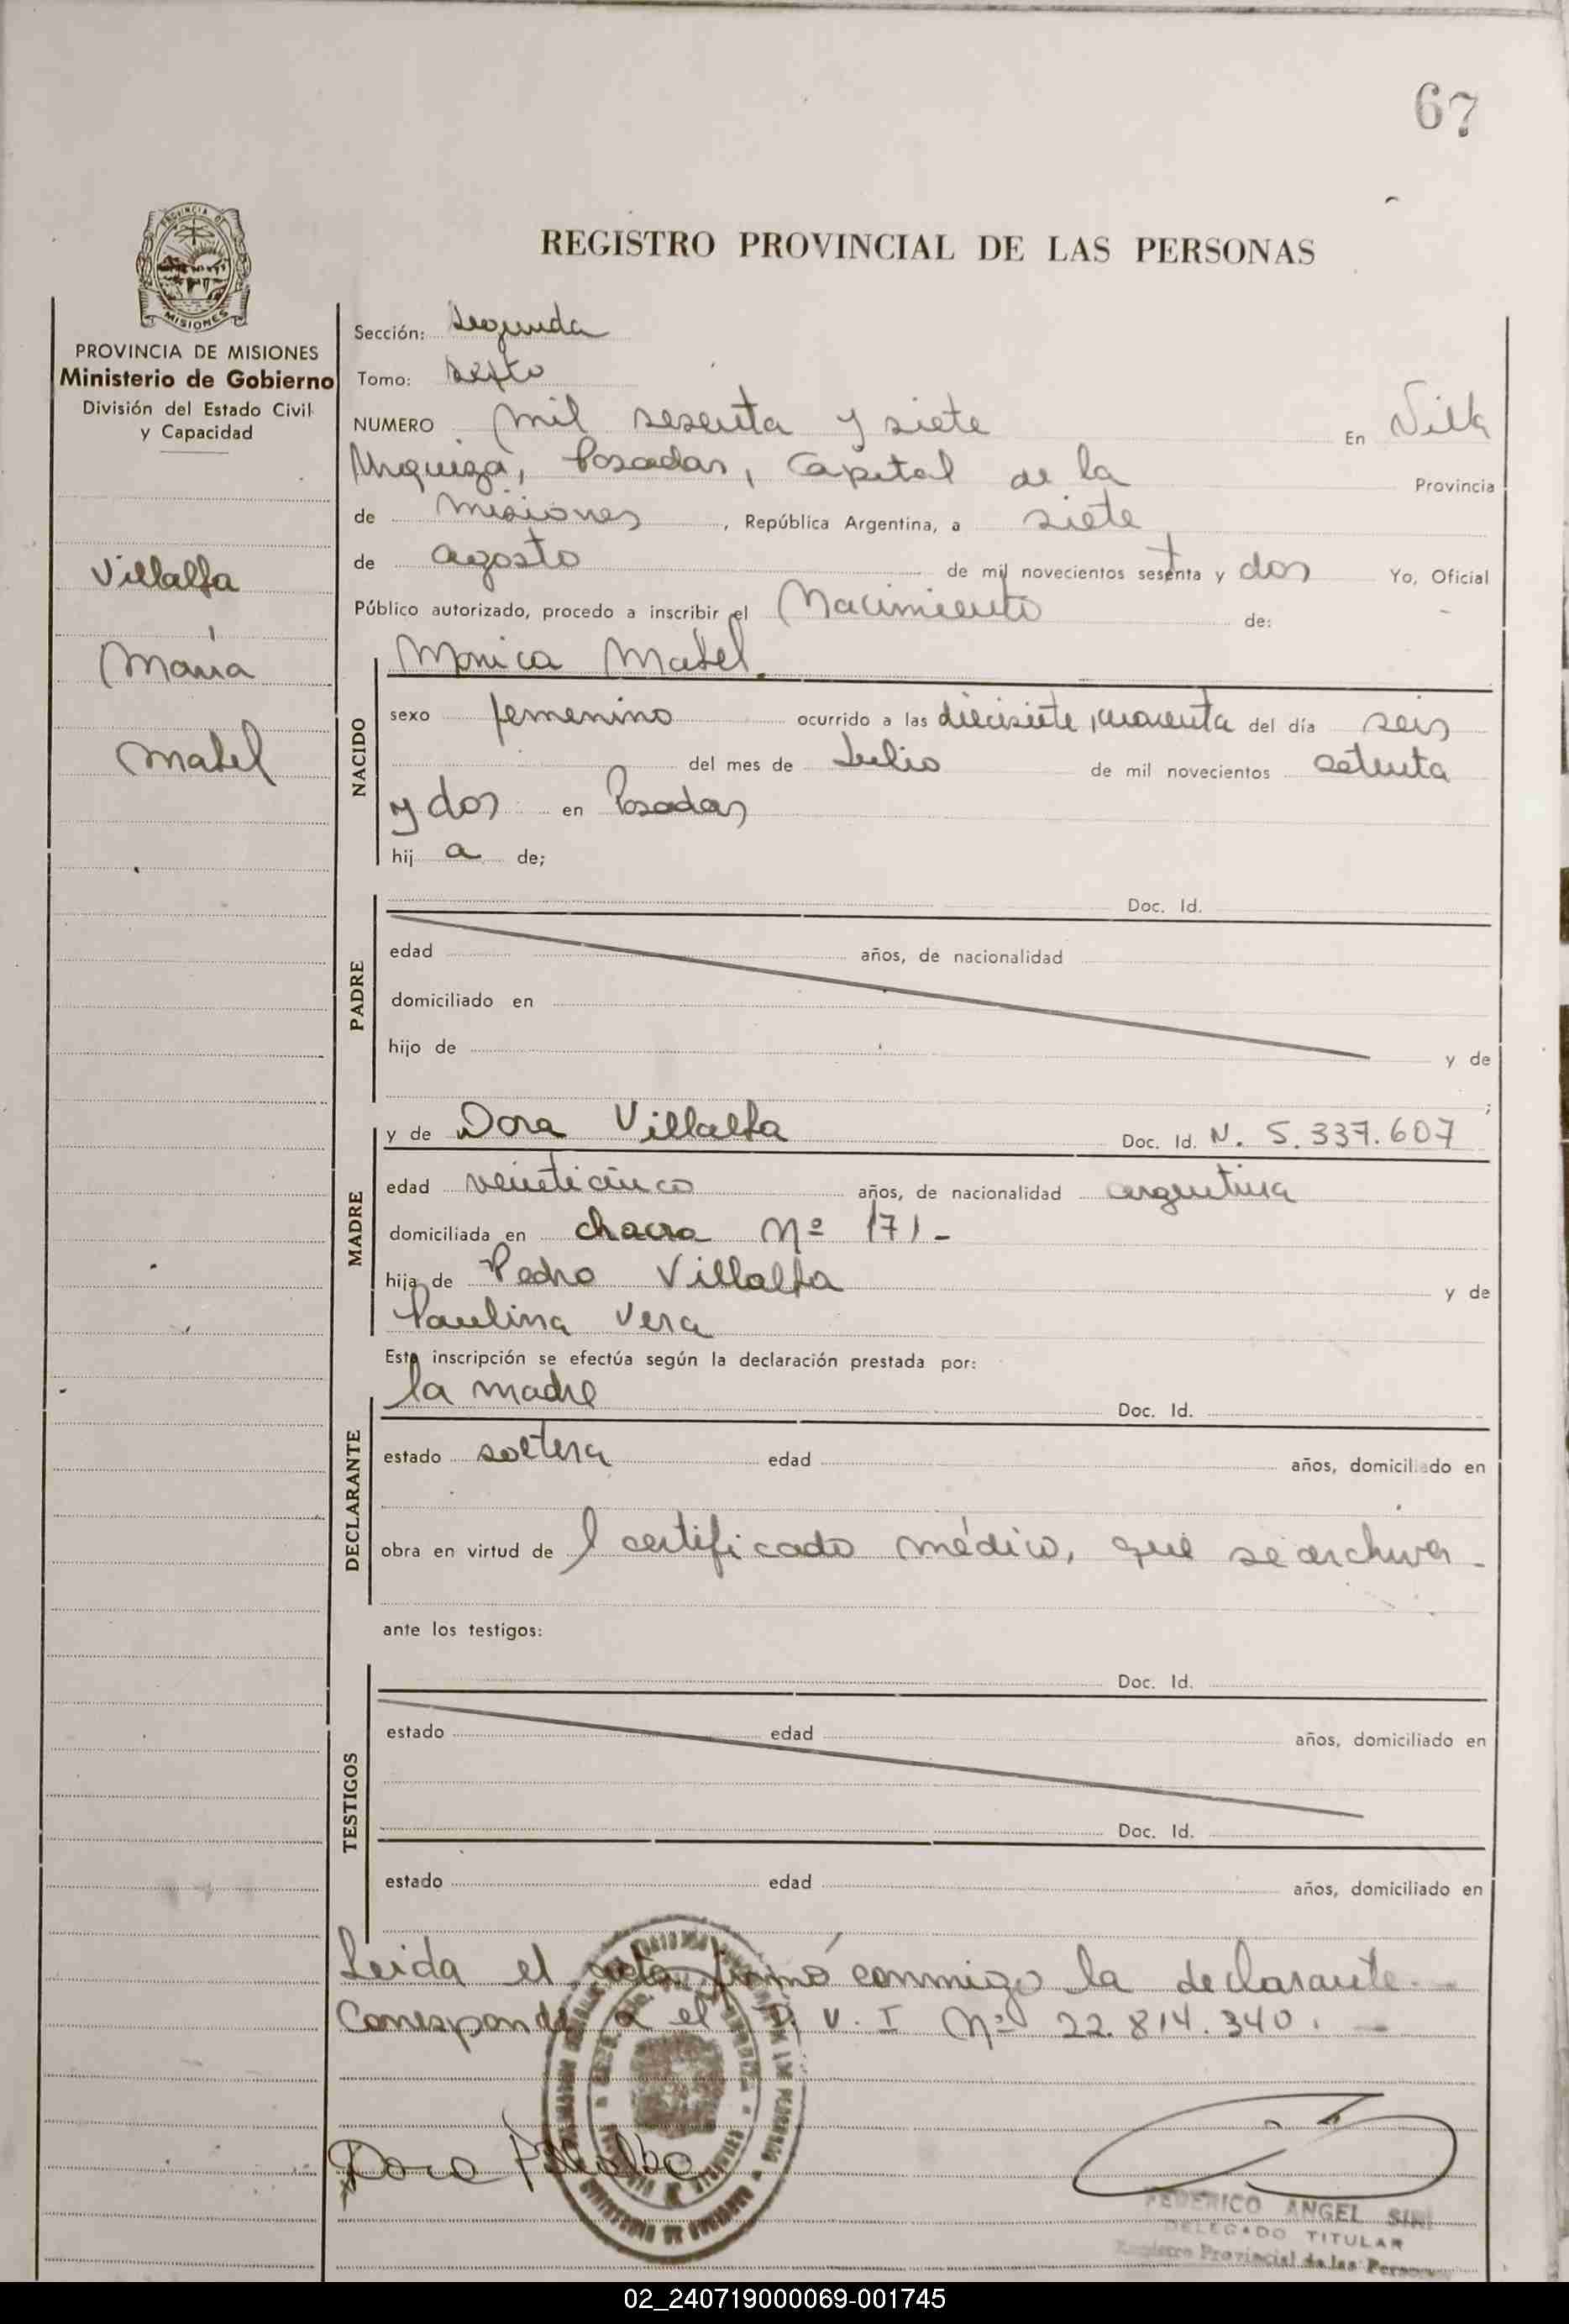 67
REGISTRO PROVINCIAL DE LAS PERSONAS
PROVINCIA DE MISIONES
Ministerio de Gobierno
División del Estado Civil
y Capacidad
Villalba
María
Mabel
Sección: Segunda
Tomo: Sexto
NUMERO mil sesenta y siete En Villa
Urquiza, Posadas, Capital de la Provincia
de Misiones, República Argentina, a siete
de agosto de mil novecientos setenta y dos Yo, Oficial
Público autorizado, procedo a inscribir el Nacimiento de:
NACIDO
Monica Mabel.
sexo femenino ocurrido a las diecisiete, cuarenta del día seis
del mes de Julio de mil novecientos setenta
y dos en Posadas
hij a de;
PADRE
Doc. Id.
edad años, de nacionalidad
domiciliado en
hijo de y de
;
MADRE
y de Dora Villalba Doc. Id. N. 5.337.607
edad veinticinco años, de nacionalidad argentina
domiciliada en chacra Nº 171-
hija de Pedro Villalba y de
Paulina Vera
Esta inscripción se efectúa según la declaración prestada por:
DECLARANTE
la madre Doc. Id.
estado soltera edad años, domiciliado en
obra en virtud de l certificado médico, que se archiva-
ante los testigos:
TESTIGOS
Doc. Id.
estado edad años, domiciliado en
Doc. Id.
estado edad años, domiciliado en
Leida el acta firmó conmigo la declarante.-
Corresponde a el D. U. I Nº 22.814.340.-
Dora Villalba
FEDERICO ANGEL SIRI
DELEGADO TITULAR
Registro Provincial de las Personas
02_240719000069-001745